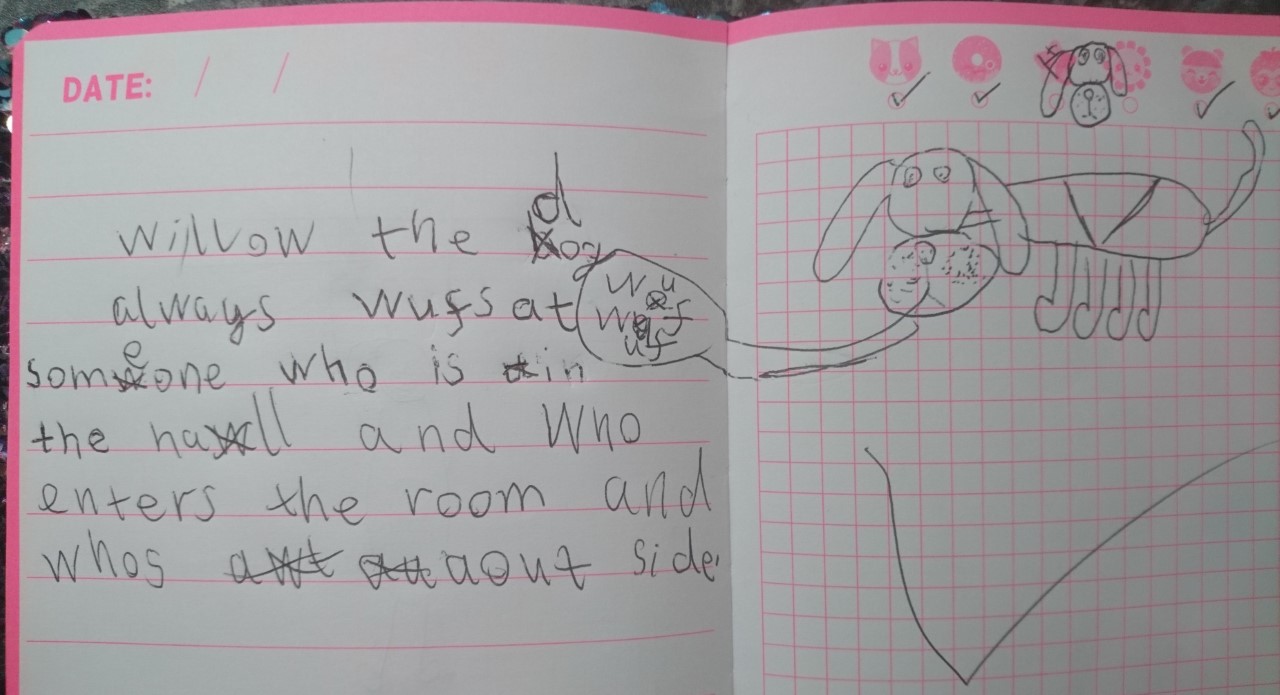 DATE: / /
willow the dog
always wufs at
someone who is in
the hall and who
enters the room and
whos aout side.
wuf
wuf
uf